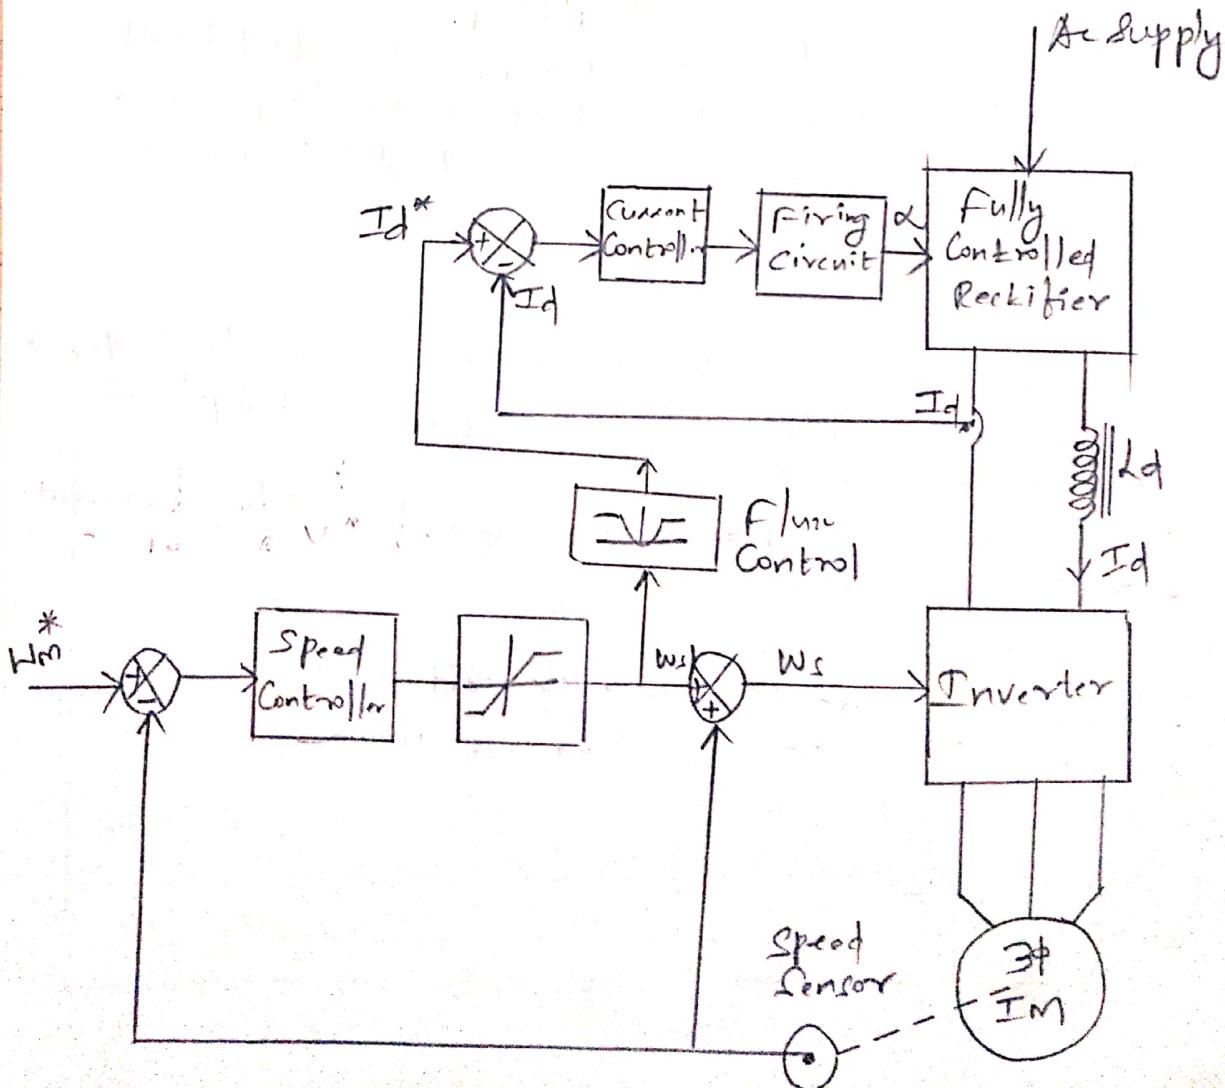 Ac Supply
Id*
+
-
Id
Current
Controller
Firing
Circuit
α
Fully
Controlled
Rectifier
Id
Ld
Id
Flux
Control
Wm*
+
-
Speed
Controller
Wsl
+
+
Ws
Inverter
Speed
Sensor
3ϕ
IM